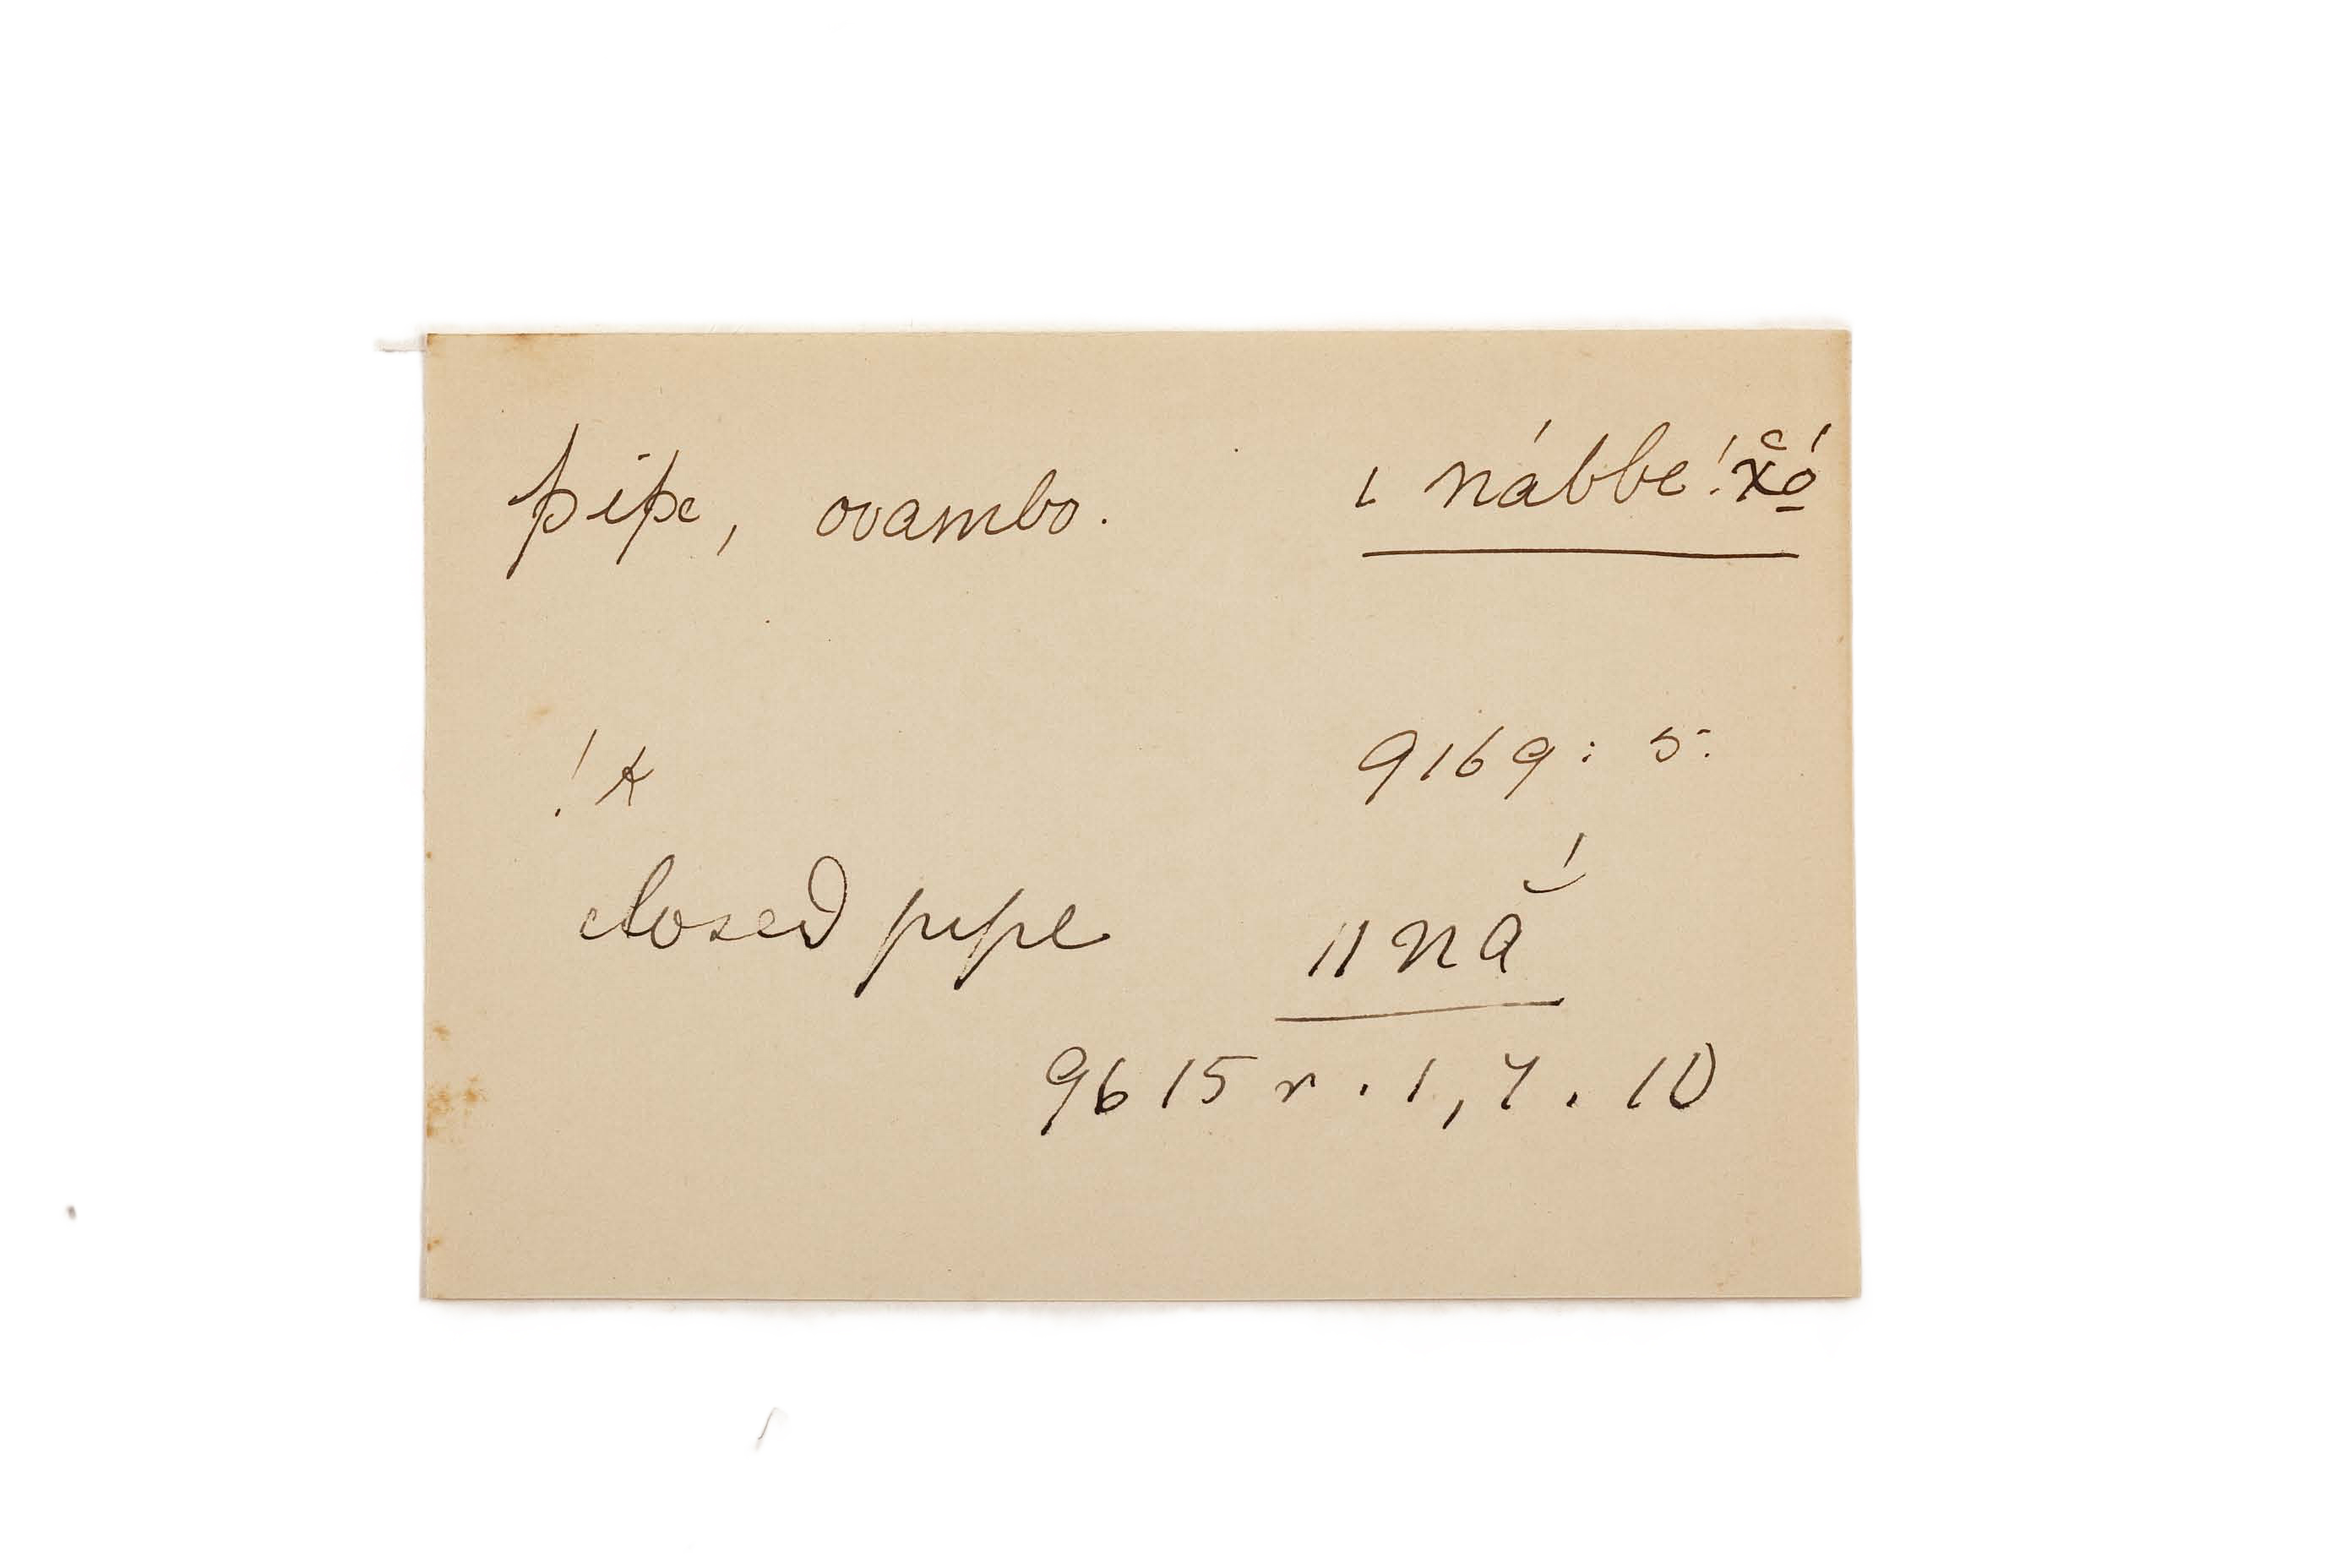 pipe, ovambo. ı nábbe!x̆ó̱
!k 9169: 5.
closed pipe ıınắ
9615 r. 1, 7. 10